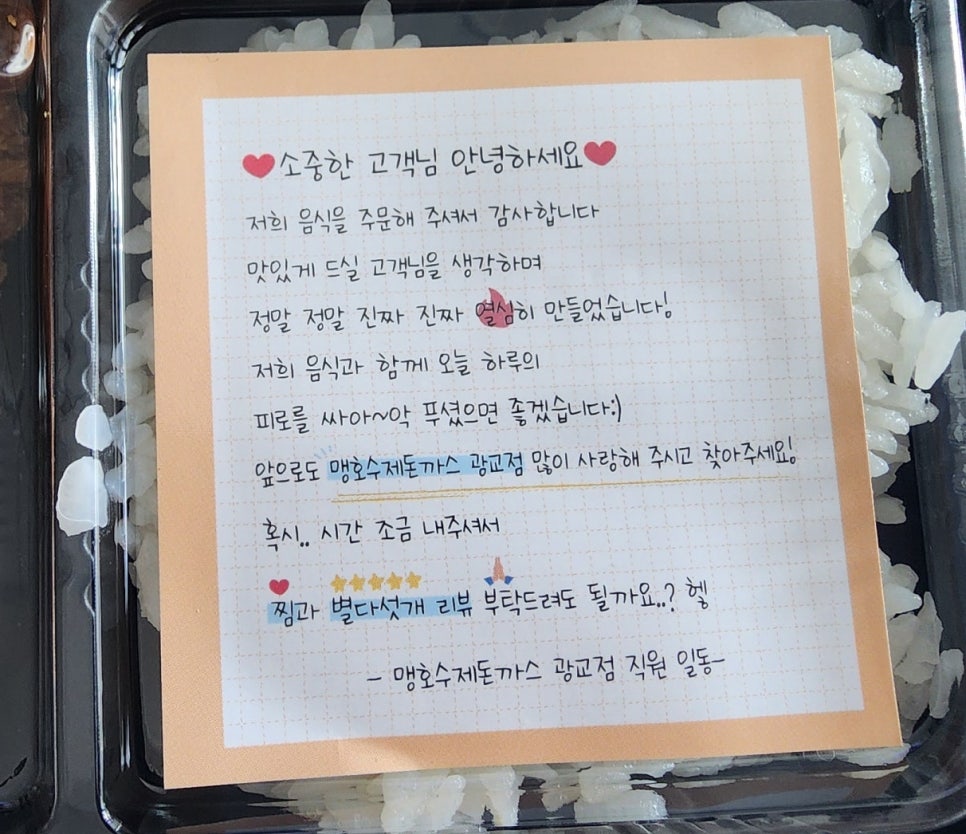 소중한 고객님 안녕하세요
저희 음식을 주문해 주셔서 감사합니다
맛있게 드실 고객님을 생각하며
정말 정말 진짜 진짜 열심히 만들었습니다!
저희 음식과 함께 오늘 하루의
피로를 싸아~악 푸셨으면 좋겠습니다:)
앞으로도 맹호수제돈까스 광교점 많이 사랑해 주시고 찾아주세요!
혹시.. 시간 조금 내주셔서
찜과 별다섯개 리뷰 부탁드려도 될까요..? 헿
- 맹호수제돈까스 광교점 직원 일동-